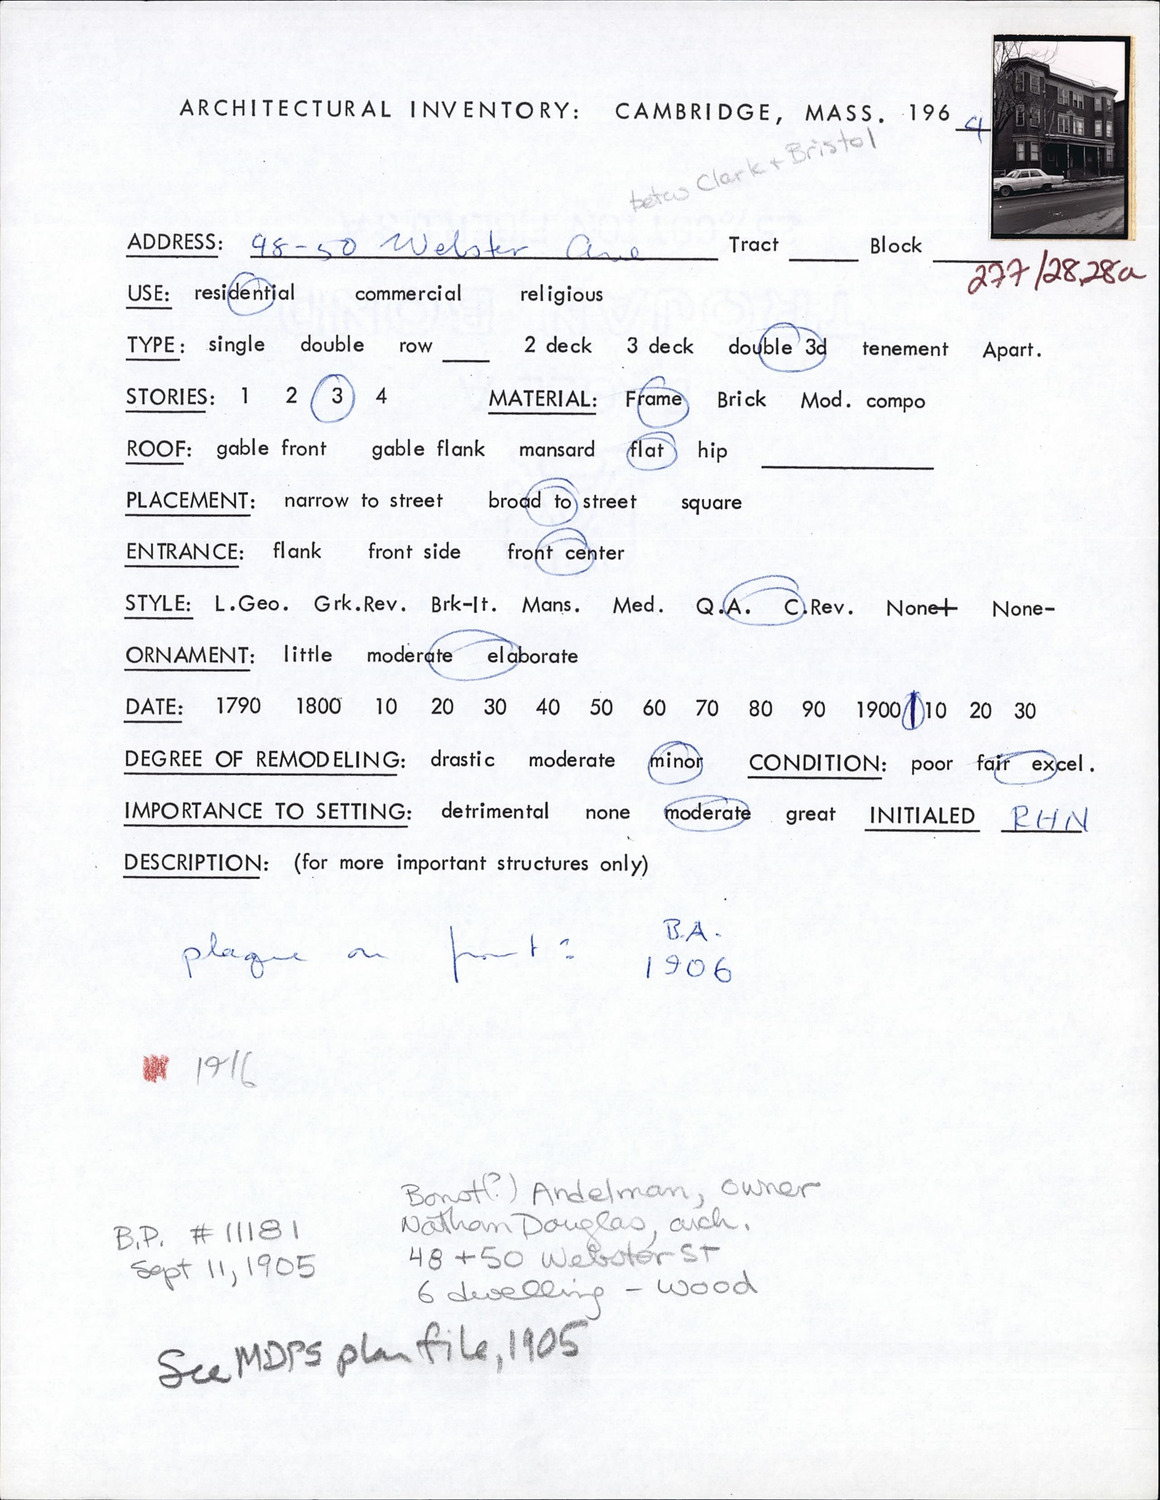 ARCHITECTURAL INVENTORY: CAMBRIDGE, MASS. 1964
betw Clark + Bristol
ADDRESS: 48-50 Webster Ave Tract ____ Block ____
277/28,28a
USE: residential commercial religious
TYPE: single double row ____ 2 deck 3 deck double 3d tenement Apart.
STORIES: 1 2 3 4 MATERIAL: Frame Brick Mod. compo
ROOF: gable front gable flank mansard flat hip ____
PLACEMENT: narrow to street broad to street square
ENTRANCE: flank front side front center
STYLE: L.Geo. Grk.Rev. Brk-It. Mans. Med. Q.A. C.Rev. None+ None-
ORNAMENT: little moderate elaborate
DATE: 1790 1800 10 20 30 40 50 60 70 80 90 1900 10 20 30
DEGREE OF REMODELING: drastic moderate minor CONDITION: poor fair excel.
IMPORTANCE TO SETTING: detrimental none moderate great INITIALED RHN
DESCRIPTION: (for more important structures only)
plaque on front: B.A.
1906
1916
Bonot(?) Andelman, owner
B.P. #11181 Nathan Douglas, arch.
Sept 11, 1905 48+50 Webster ST
6 dwelling - wood
See MDPS plan file, 1905